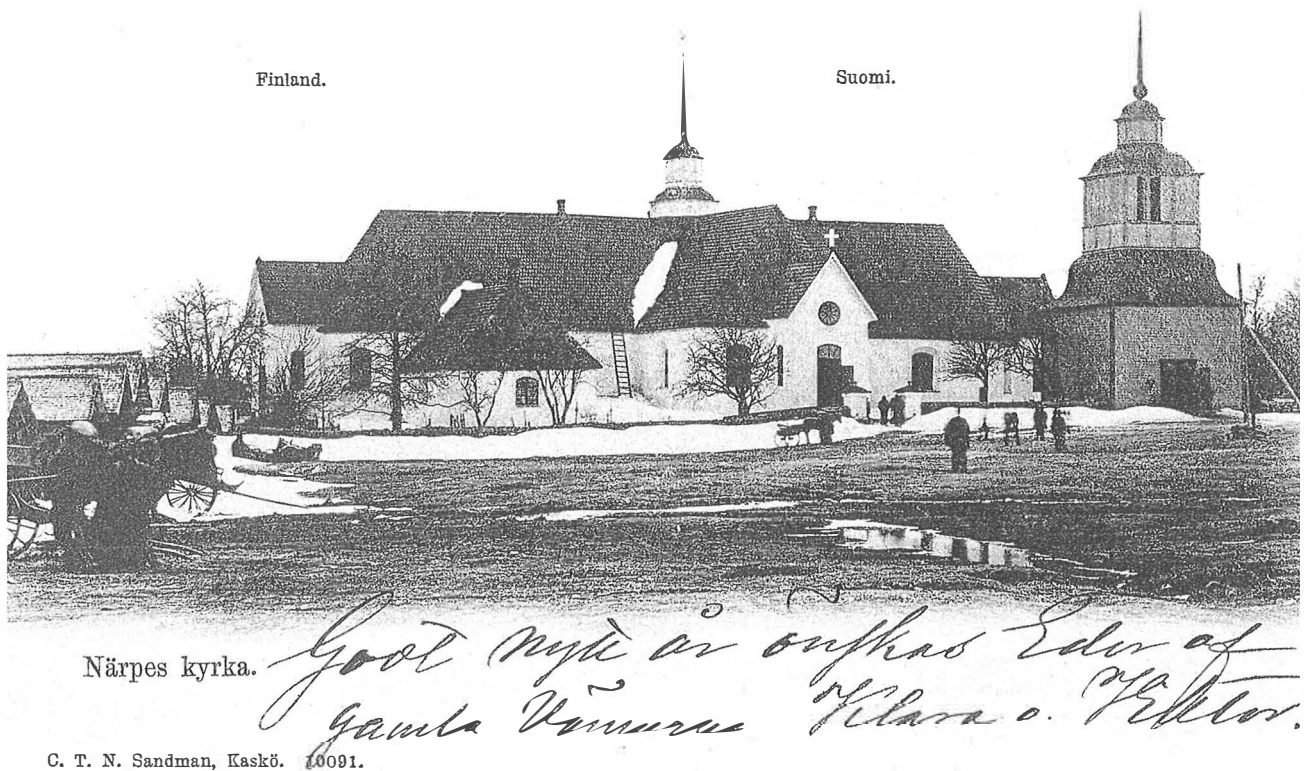 Finland. Suomi.
Närpes kyrka.
Godt nytt år önskas Eder af
gamla Vännerna Klara o. Viktor.
C. T. N. Sandman, Kaskö. 10091.